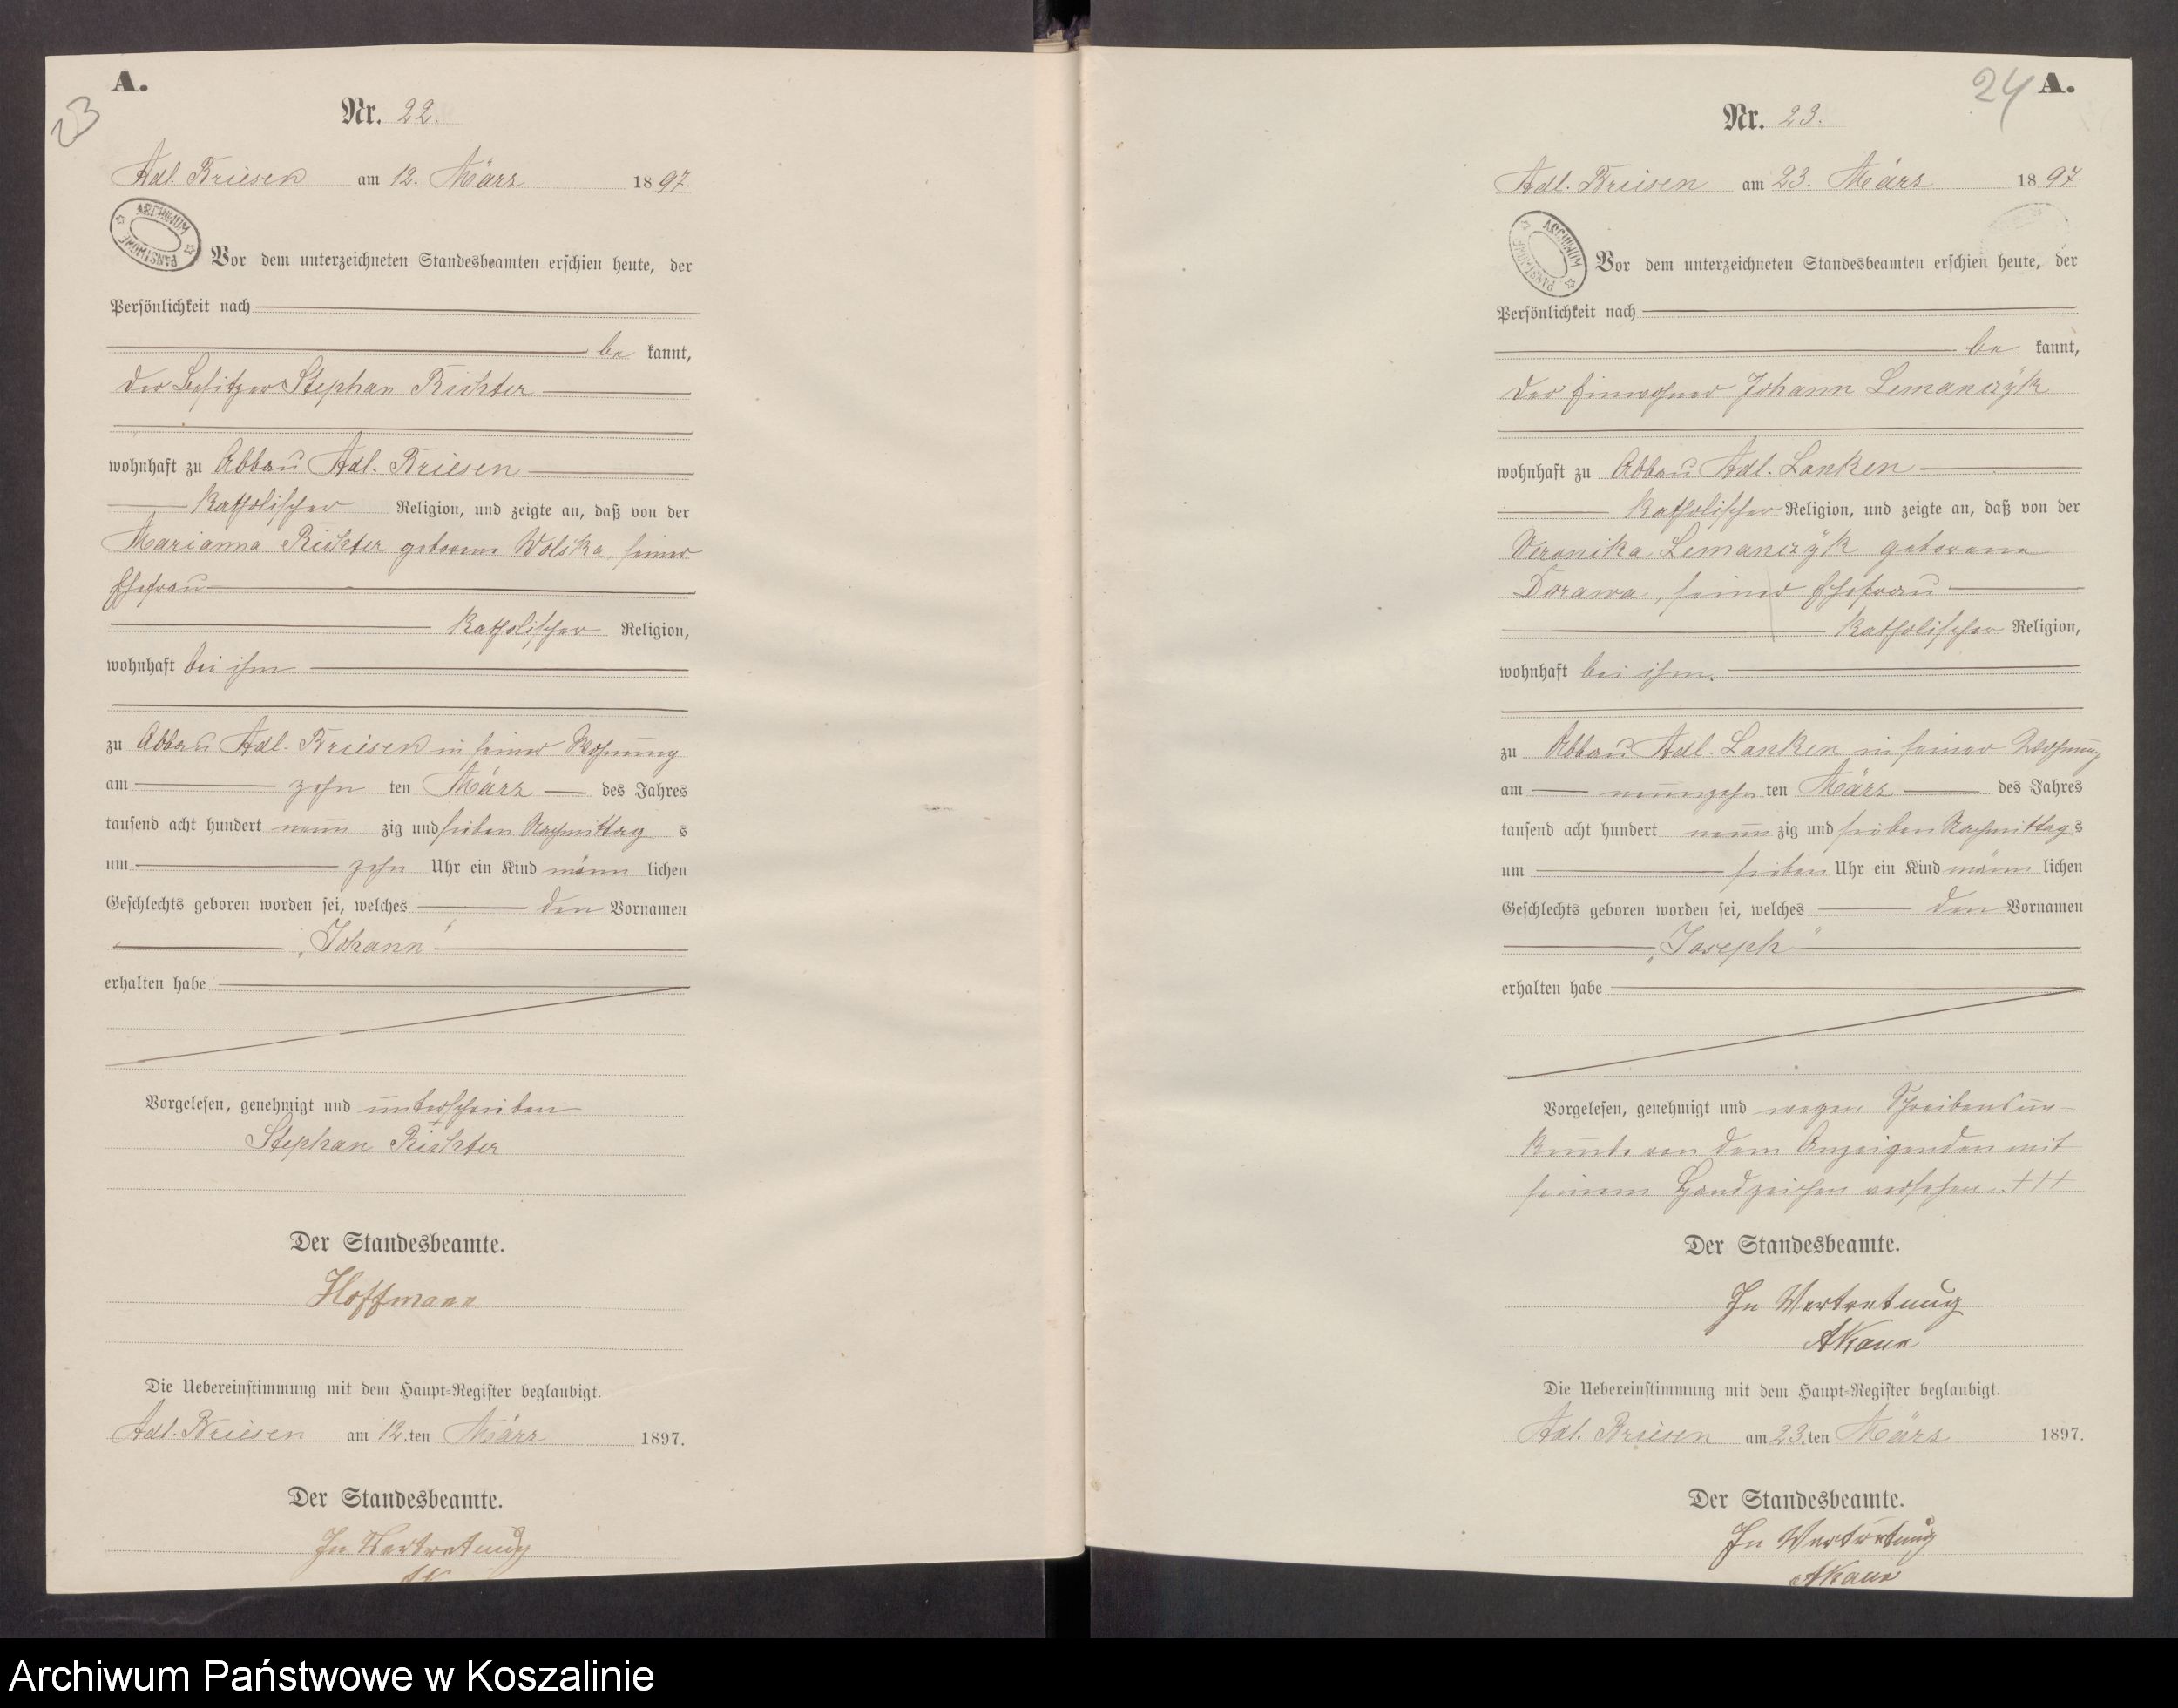 A.
23
Nr. 22.
Adl. Briesen am 12. März 1897.
ARCHIWUM PAŃSTWOWE
Vor dem unterzeichneten Standesbeamten erschien heute, der
Persönlichkeit nach
be kannt,
der Besitzer Stephan Richter
wohnhaft zu Abbau Adl. Briesen
katholischer Religion, und zeigte an, daß von der
Marianna Richter geborene Wolska, seiner
Ehefrau
katholischer Religion,
wohnhaft bei ihm
zu Abbau Adl. Briesen in seiner Wohnung
am zehn ten März des Jahres
tausend acht hundert neun zig und sieben Nachmittag s
um zehn Uhr ein Kind männ lichen
Geschlechts geboren worden sei, welches den Vornamen
„Johann“
erhalten habe
Vorgelesen, genehmigt und unterschrieben
Stephan Richter
Der Standesbeamte.
Hoffmann
Die Uebereinstimmung mit dem Haupt-Register beglaubigt.
Adl. Briesen am 12. ten März 1897.
Der Standesbeamte.
In Vertretung
24 A.
Nr. 23.
Adl. Briesen am 23. März 1897
ARCHIWUM PAŃSTWOWE
Vor dem unterzeichneten Standesbeamten erschien heute, der
Persönlichkeit nach
be kannt,
der Einwohner Johann Lemanczÿk
wohnhaft zu Abbau Adl. Lanken
katholischer Religion, und zeigte an, daß von der
Veronika Lemanczÿk geborene
Dorawa, seiner Ehefrau
katholischer Religion,
wohnhaft bei ihm.
zu Abbau Adl. Lanken in seiner Wohnung
am neunzehn ten März des Jahres
tausend acht hundert neun zig und sieben Nachmittag s
um sieben Uhr ein Kind männ lichen
Geschlechts geboren worden sei, welches den Vornamen
„Joseph“
erhalten habe
Vorgelesen, genehmigt und wegen Schreibensun-
kunde von dem Anzeigenden mit
seinem Handzeichen versehen. +++
Der Standesbeamte.
In Vertretung
Die Uebereinstimmung mit dem Haupt-Register beglaubigt.
Adl. Briesen am 23. ten März 1897.
Der Standesbeamte.
In Vertretung
Archiwum Państwowe w Koszalinie